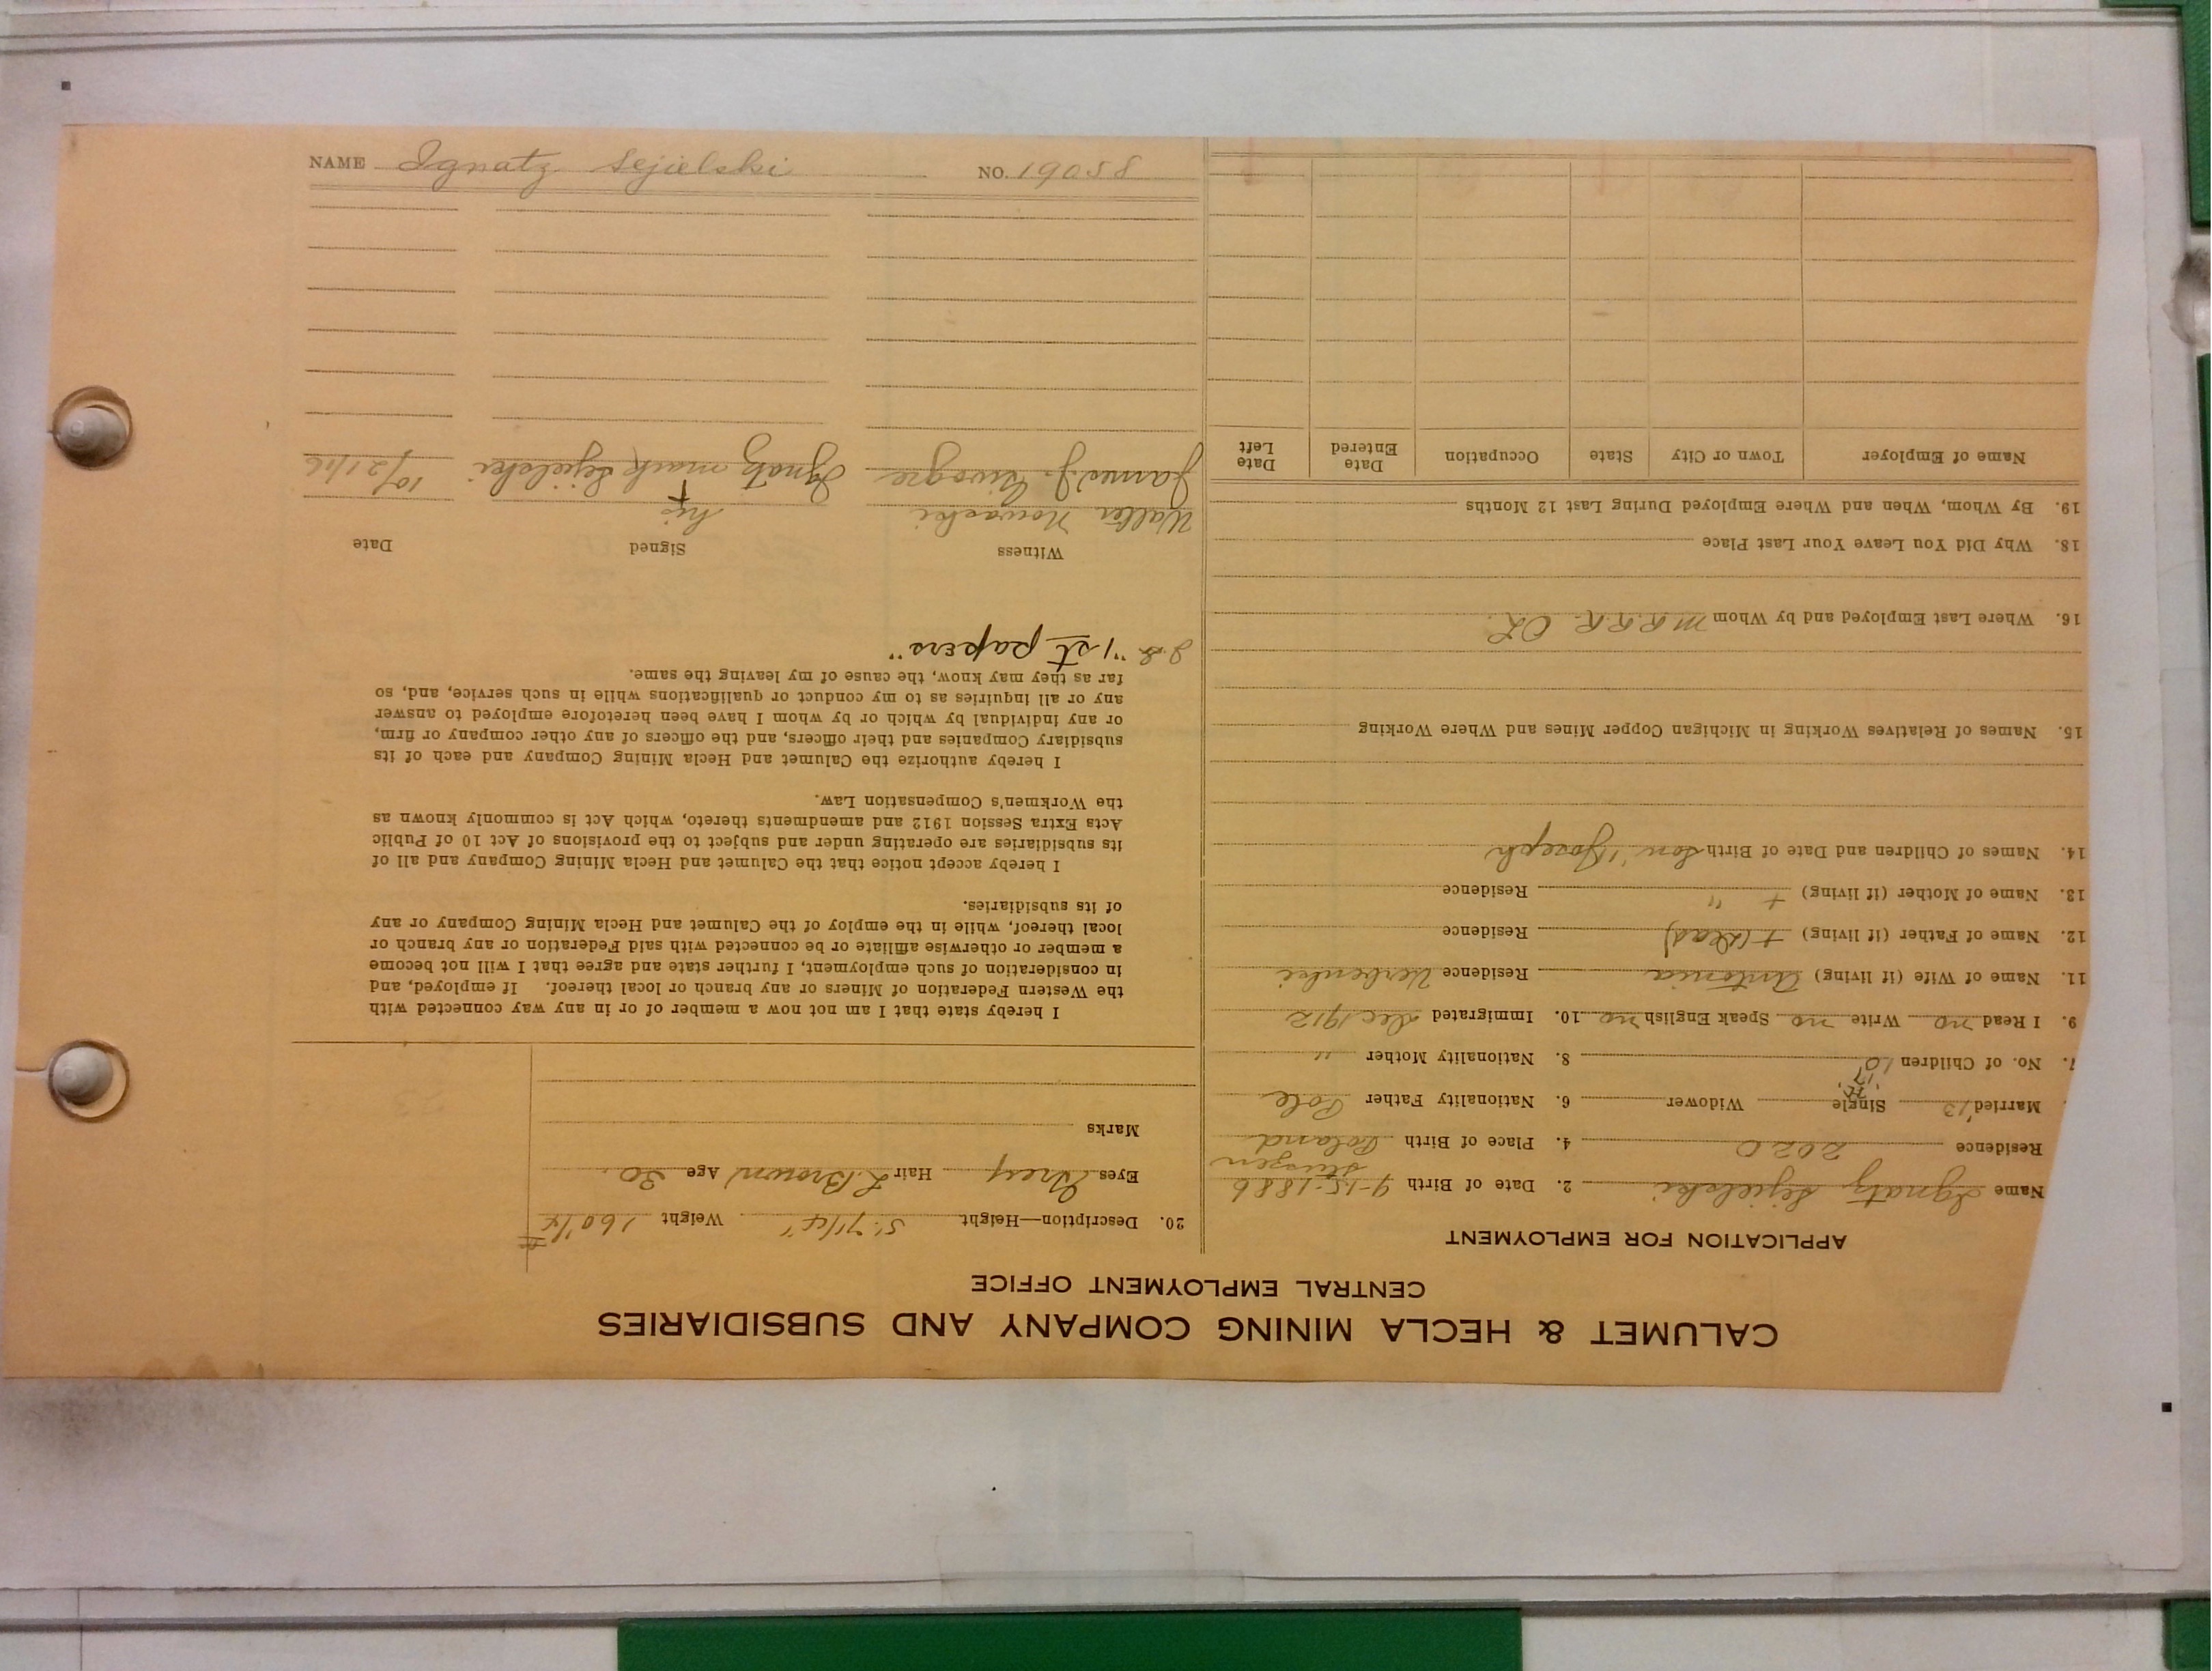 NAME Ignatz Sejielski NO. 19058
CALUMET & HECLA MINING COMPANY AND SUBSIDIARIES
CENTRAL EMPLOYMENT OFFICE
APPLICATION FOR EMPLOYMENT
Name Ignatz Sejielski 2. Date of Birth 9-15-1886
Residence 2020 4. Place of Birth Poland
Married '13 Single Widower 6. Nationality Father Pole
7. No. of Children 1 8. Nationality Mother "
9. I Read no Write no Speak English no 10. Immigrated Dec 1912
11. Name of Wife (if living) Antonia Residence
12. Name of Father (if living) + (dead) Residence
13. Name of Mother (if living) + " Residence
14. Names of Children and Date of Birth Son, Joseph
15. Names of Relatives Working in Michigan Copper Mines and Where Working
16. Where Last Employed and by Whom M.R.R.R. OL
18. Why Did You Leave Your Last Place
19. By Whom, When and Where Employed During Last 12 Months
Name of Employer Town or City State Occupation Date Entered Date Left
20. Description—Height 5'.7 1/4" Weight 160 1/4 #
Eyes Grey Hair L. Brown Age 30.
Marks
I hereby state that I am not now a member of or in any way connected with
the Western Federation of Miners or any branch or local thereof. If employed, and
in consideration of such employment, I further state and agree that I will not become
a member or otherwise affiliate or be connected with said Federation or any branch or
local thereof, while in the employ of the Calumet and Hecla Mining Company or any
of its subsidiaries.
I hereby accept notice that the Calumet and Hecla Mining Company and all of
its subsidiaries are operating under and subject to the provisions of Act 10 of Public
Acts Extra Session 1912 and amendments thereto, which Act is commonly known as
the Workmen's Compensation Law.
I hereby authorize the Calumet and Hecla Mining Company and each of its
subsidiary Companies and their officers, and the officers of any other company or firm,
or any individual by which or by whom I have been heretofore employed to answer
any or all inquiries as to my conduct or qualifications while in such service, and, so
far as they may know, the cause of my leaving the same.
"1st papers"
Witness Signed Date
Walter Nowacki his
James J. Ignatz + mark Sejielski 10/21/16